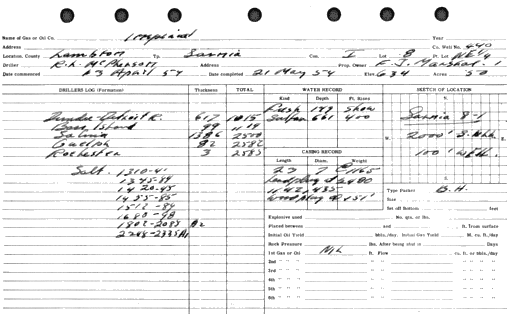 Name of Gas or Oil Co. Imperial Year
Address Co. Well No. 440
Location, County Lambton Tp. Sarnia Con. I Lot 8 Pt. Lot NE 1/4
Driller R.L. McPherson Address Prop. Owner F. J. Marshal - 1
Date commenced 23 April 54 Date completed 21 May 54 Elev. 634 Acres 50
DRILLERS LOG (Formation) Thickness TOTAL WATER RECORD SKETCH OF LOCATION
Kind Depth Ft. Rises
Fresh 179 Show
Dundee-Detroit R. 617 1015 Sulfur 661 400 Sarnia 8-1
Bass Island 99
Salina 1386 2500 2000' S.
Guelph 82 2582 CASING RECORD 100' W
Rochester 3 2585 Length Diam. Weight
Salt. 1310-41
1345-84
1420-45
1455-85 Type Packer B.H.
1512-84 Size
1680-98 Set off Bottom feet
1802-2088 A2 Explosive used No. qts. or lbs.
2248-2335 A1 Placed between and ft. from surface
Initial Oil Yield bbls./day. Initial Gas Yield M. cu. ft./day
Rock Pressure lbs. After being shut in Days
1st Gas or Oil NIL ft. Flow cu. ft. or bbls./day
2nd " " "
3rd " " "
4th " " "
5th " " "
6th " " "